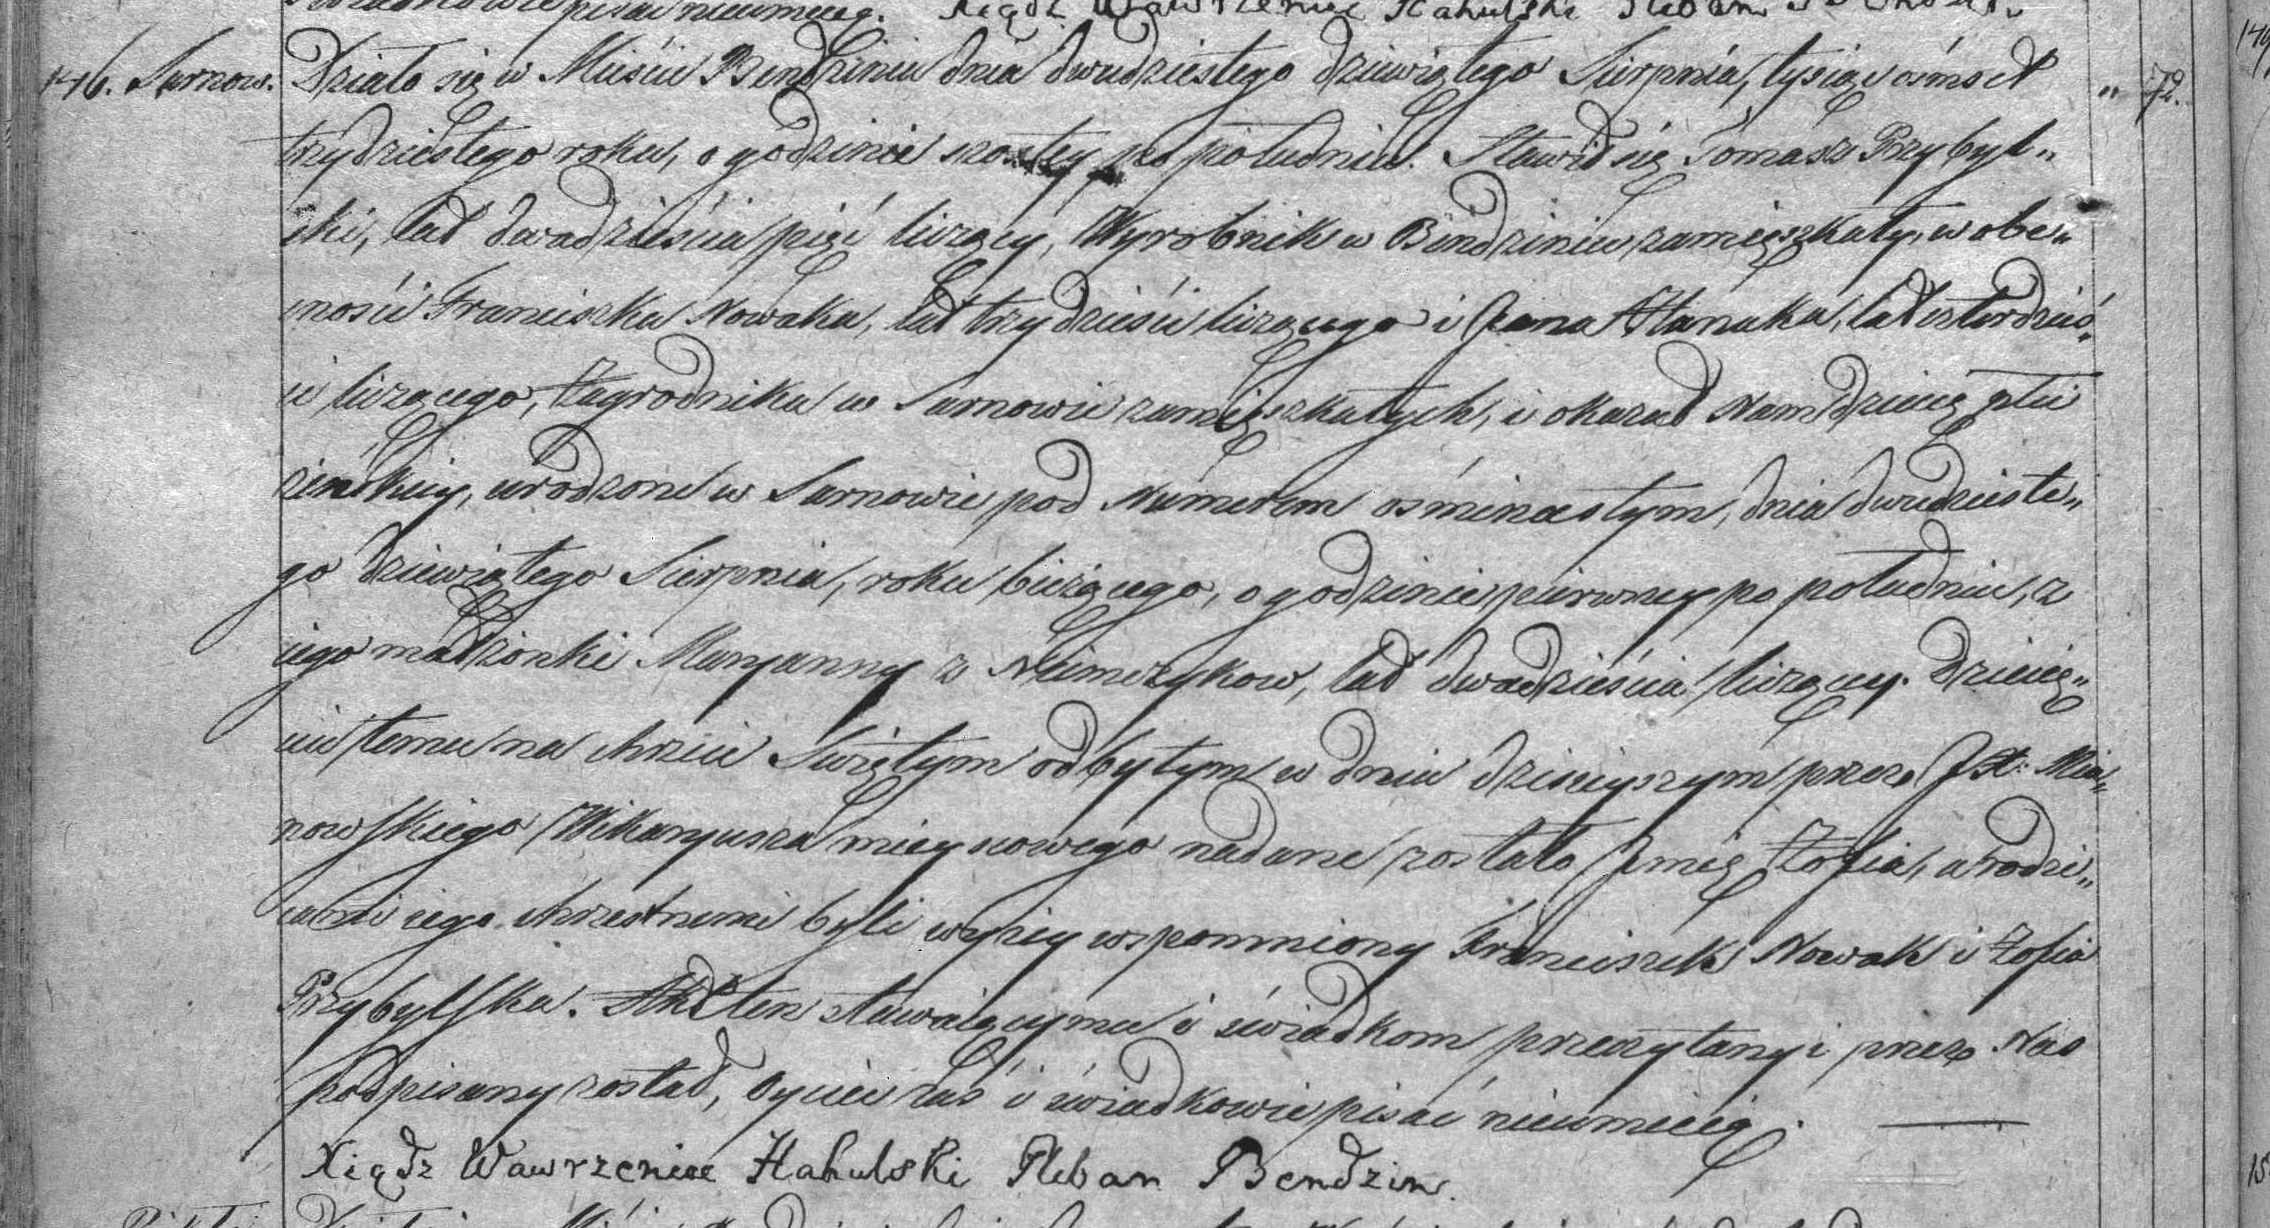 pisać nieumieią. Xiądz Wawrzeniec Hahulski Pleban
146. Sarnow. Działo się w Mieście Bendzinie dnia dwudziestego dziewiątego Sierpnia, tysiąc ośmset „ 72.
trzydziestego roku, o godzinie szostey po południu. Stawił się Tomasz Przybyl„
ski, lat dwadzieścia pięć liczący, Wyrobnik w Bendzinie zamięszkały, w obe„
cności Franciszka Nowaka, lat trzydzieści liczącego i Jana Hanaka, lat czterdzieś„
ci liczącego, Zagrodnika w Sarnowie zamięszkałych, i okazał Nam dziecię płci
zeńskiey, urodzone w Sarnowie pod Numerem ośminastym, dnia dwudzieste„
go dziewiątego Sierpnia, roku bieżącego, o godzinie pierwszey po południu, z
iego małzonki Maryanny z Niemczykow, lat dwadzieścia liczącey. Dziecię„
ciu temu na chrzcie Świętym odbytym w dniu dzisieyszym przez J.X. Mia„
nowskiego Wikaryusza mieyscowego nadane zostało Jmię Zofia, a rodzi„
cami iego chrzestnemi byli wyżey wspomniony Franciszek Nowak i Zofia
Przybylska. Akt ten stawaiącymu i świadkom przeczytany i przez Nas
podpisany został, Oyciec zaś i świadkowie pisać nieumieią.
Xiądz Wawrzeniec Hahulski Pleban Bendzin.